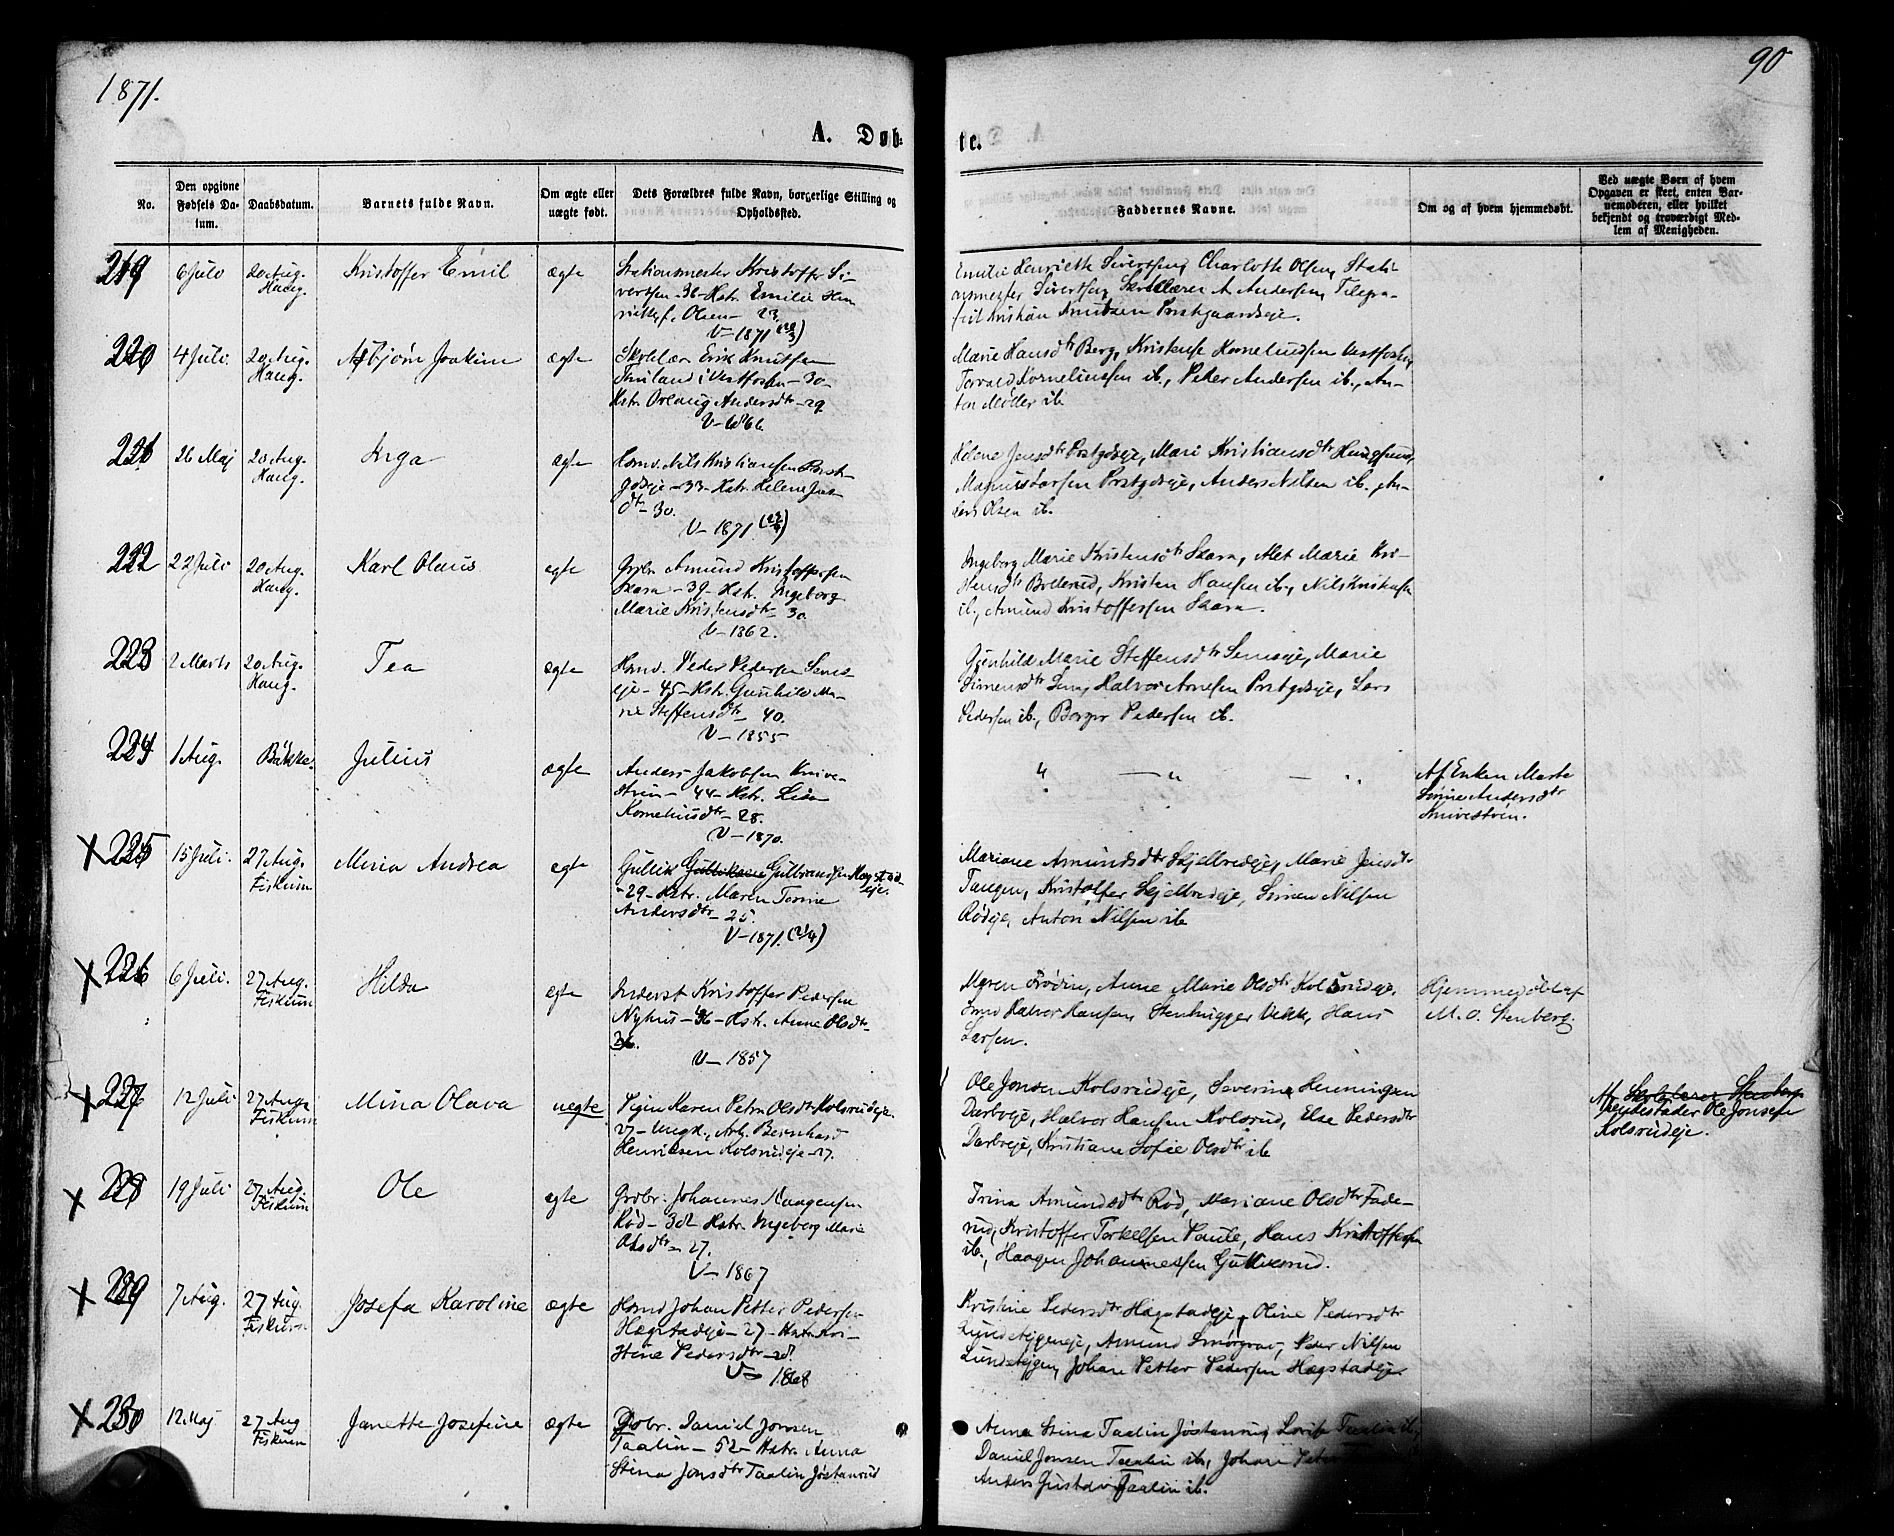 1871.
90
A. Døb-
te.
No.
Den opgivne Fødsels Da-tum.
Daabsdatum.
Barnets fulde Navn.
Om ægte eller uægte født.
Dets Forældres fulde Navn, borgerlige Stilling og Opholdssted.
Faddernes Navne.
Om og af hvem hjemmedøbt.
Ved uægte Børn af hvem Opgaven er skeet, enten Bar-nemoderen, eller hvilket bekjendt og troværdigt Med-lem af Menigheden.
219 6 Juli 20 Aug. Haug. Kristoffer Emil ægte
Stationsmester Kristoffer Si-
vertsen - 36 - Hstr. Emilie Hen
Olsen - 23.
V - 1871
Emilie Henriette Sivertsen, Charlotte Olsen, Stati-
onsmester Sivertsen, A. Andersen, Telegra-
Knutsen
220 4 Juli. 20 Aug. Haug. Asbjørn Joakim ægte
Skolelær Erik Knutsen
i Vestfossen - 30 -
Hstr. Andersdtr - 29
V - 1866
Marie Hansdtr Berg, Vestfossen,
Torvald Korneliussen ib., Peter Andersen ib., An-
ton Møller ib
221 26 Maj 20 Aug. Haug. Inga ægte
Nils Kristiansen Prst
gdseje - 33 - Hstr. Helene Jens
dtr - 30.
V - 1871
Helene Jensdtr Prstgdseje, Mari Kristiansdtr
Larsen Prstgdseje, Anders Nilsen ib., An-
ders Olsen ib.
222 22 Juli 20 Aug. Haug. Karl Olaus egte
Grdbr. Amund Kristoffersen
Skara - 39 - Hstr. Ingeborg
Marie Kristensdtr - 30.
V - 1862.
Ingeborg Marie Kristensdtr Skara, Alet Marie Kri-
stensdtr Bollerud, Kristen Hansen ib., Nils Kristensen
ib., Amund Kristoffersen Skara.
223 2 Marts 20 Aug. Haug. Tea egte
Peder Pedersen Sems
eje - 45 - Hstr. Gunhild Ma-
rie Steffensdtr - 40.
V - 1855
Gunhild Marie Steffensdtr Semseje, Marie
Simensdtr Sem, Halvor Arnesen Prstgdseje, Lars
Pedersen ib., Pedersen ib.
224 1 Aug. Julius ægte
Anders Jakobsen Knive-
- 44 - Hstr. Lise
Korneliusdtr - 28.
V - 1870.
" — " — "
Af Enken Marte
Andersdtr
X 225 15 Juli. 27 Aug. Fiskum Mina Andrea egte
Gullik Gulbrandsen Hægstad
eje.
- 29 - Hstr. Maren Torine
Andersdtr - 25.
V - 1871. (2/4)
Mariane Amundsdtr Skjelbredeje, Marie Jensdtr
Tangen, Kristoffer Skjelbredeje, Simen Nilsen
Rødeje, Anton Nilsen ib
X 226 6 Juli. 27 Aug. Fiskum Hilda egte
Inderst Kristoffer Pedersen
Nyhus - 36 - Hstr. Anne Olsdtr -
36.
V - 1857
Maren Frødin, Anne Marie Olsdtr Kolsrudeje,
Halvor Hansen, Stenhugger Hans
Larsen.
Hjemmedøbt af
M. O. Stenberg.
X 227 12 Juli 27 Aug. Fiskum Mina Olava uegte
Pigen Karen Petra Olsdtr Kolsrudeje
Bernhard
Henriksen Kolsrudeje - 27.
Ole Jonsen Kolsrudeje, Severine Henningsen
Darboeje, Halvor Hansen Kolsrud, Else Pedersdtr
Darboeje, Kristiane Sofie Olsdtr ib
Af Skolelærer Stenberg
Ole Jonsen
Kolsrudeje.
X 228 19 Juli 27 Aug. Fiskum Ole egte
Grdbr. Johannes Haagensen
Rød - 30 - Hstr. Ingeborg Marie
Olsdtr - 27.
V - 1867
Trina Amundsdtr Rød, Mariane Olsdtr Fade-
rud, Kristoffer Torkelsen Paule, Hans Kristoffersen
ib., Haagen Johannessen Gulliksrud.
X 229 7 Aug. 27 Aug. Fiskum Josefa Karoline ægte
Johan Petter Pedersen
Hægstadeje - 27 - Hstr. Kri-
stine Pedersdtr
V - 1868
Kristine Pedersdtr Hægstadeje, Oline Pedersdtr
Amund Smørgrav, Peder Nilsen
Johan Petter Pedersen Hægstadeje
X 230 12 Maj 27 Aug Fiskum Janette Josefine ægte
Daniel Jonsen
Taalin - 52 - Hstr. Anna
Stina Jonsdtr Taalin Jøstanrud
Anna Stina Taalin Jøstanrud, Taalin ib.,
Daniel Jonsen Taalin ib., Johan Peter
Anders Gustav Taalin ib.